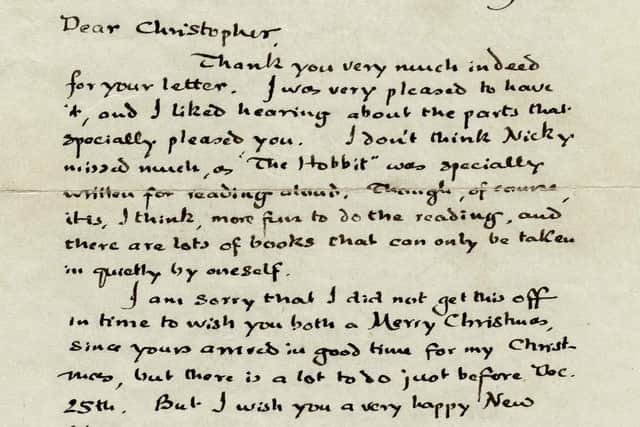 Dear Christopher,
Thank you very much indeed
for your letter. I was very pleased to have
it, and I liked hearing about the parts that
specially pleased you. I don't think Nicky
missed much, as "The Hobbit" was specially
written for reading aloud. Though, of course,
it is, I think, more fun to do the reading, and
there are lots of books that can only be taken
in quietly by oneself.
I am sorry that I did not get this off
in time to wish you both a Merry Christmas,
since yours arrived in good time for my Christ-
mas, but there is a lot to do just before Dec.
25th. But I wish you a very happy New